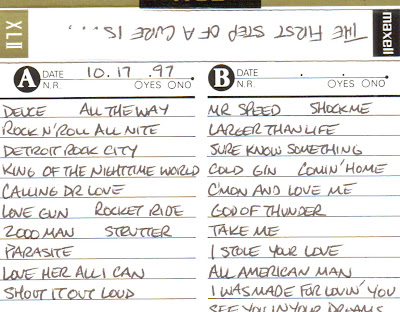 XLII
THE FIRST STEP OF A CURE IS....,
maxell
A DATE 10.17 .97
N.R. OYES ONO
B DATE . . .
N.R. OYES ONO
DEUCE ALL THE WAY
ROCK N' ROLL ALL NITE
DETROIT ROCK CITY
KING OF THE NIGHTTIME WORLD
CALLING DR LOVE
LOVE GUN ROCKET RIDE
2000 MAN STRUTTER
PARASITE
LOVE HER ALL I CAN
SHOUT IT OUT LOUD
MR SPEED SHOCK ME
LARGER THAN LIFE
SURE KNOW SOMETHING
COLD GIN COMIN' HOME
C'MON AND LOVE ME
GOD OF THUNDER
TAKE ME
I STOLE YOUR LOVE
ALL AMERICAN MAN
I WAS MADE FOR LOVIN' YOU
SEE YOU IN YOUR DREAMS